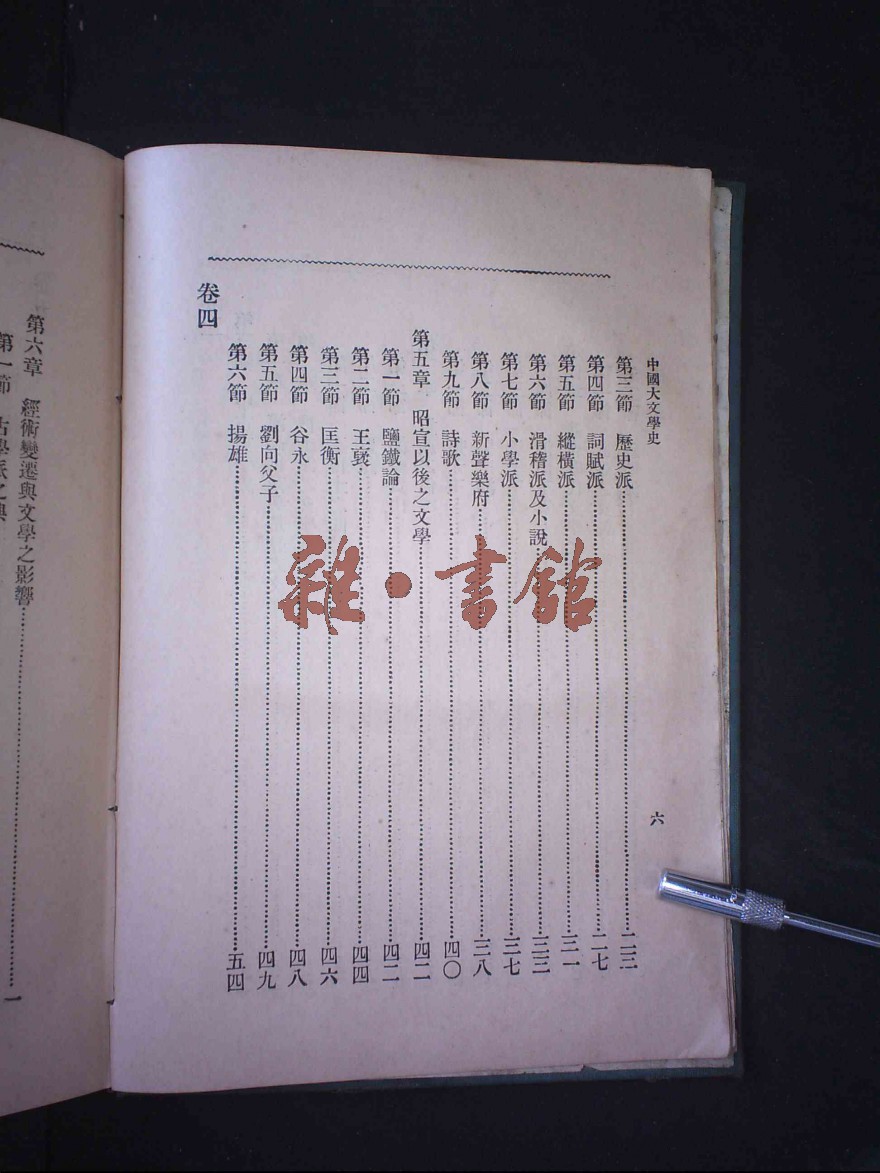 中國大文學史
六
第三節 歷史派 二三
第四節 詞賦派 二七
第五節 縱橫派 三一
第六節 滑稽派及小說 三三
第七節 小學派 三七
第八節 新聲樂府 三八
第九節 詩歌 四〇
第五章 昭宣以後之文學 四二
第一節 鹽鐵論 四二
第二節 王襃 四四
第三節 匡衡 四六
第四節 谷永 四八
第五節 劉向父子 四九
第六節 揚雄 五四
卷四
第六章 經術變遷與文學之影響 一
第一節 古學派之
雜·書館